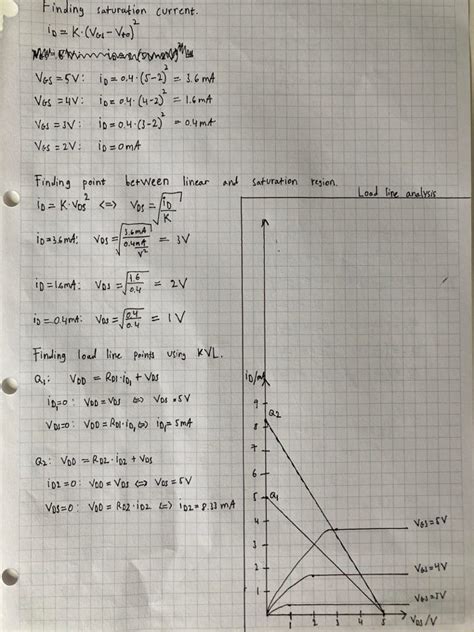 Finding saturation current.
iD = K·(VGS - Vto)²
VGS = 5V: iD = 0.4·(5-2)² = 3.6 mA
VGS = 4V: iD = 0.4·(4-2)² = 1.6 mA
VGS = 3V: iD = 0.4·(3-2)² = 0.4 mA
VGS = 2V: iD = 0 mA
Finding point between linear and saturation region.
iD = K·VDS² <=> VDS = √(iD/K)
iD = 3.6mA: VDS = √(3.6mA/(0.4mA/V²)) = 3V
iD = 1.6mA: VDS = √(1.6/0.4) = 2V
iD = 0.4mA: VDS = √(0.4/0.4) = 1V
Finding load line points using KVL.
Q1: VDD = RD1·iD1 + VDS
iD1=0: VDD = VDS <=> VDS = 5V
VDS=0: VDD = RD1·iD1 <=> iD1 = 5mA
Q2: VDD = RD2·iD2 + VDS
iD2=0: VDD = VDS <=> VDS = 5V
VDS=0: VDD = RD2·iD2 <=> iD2 = 8.33 mA
Load line analysis
iD/mA
9
Q2
8
7
6
5
Q1
4
3
2
1
VGS=5V
VGS=4V
VGS=3V
1 2 3 4 5 VDS/V